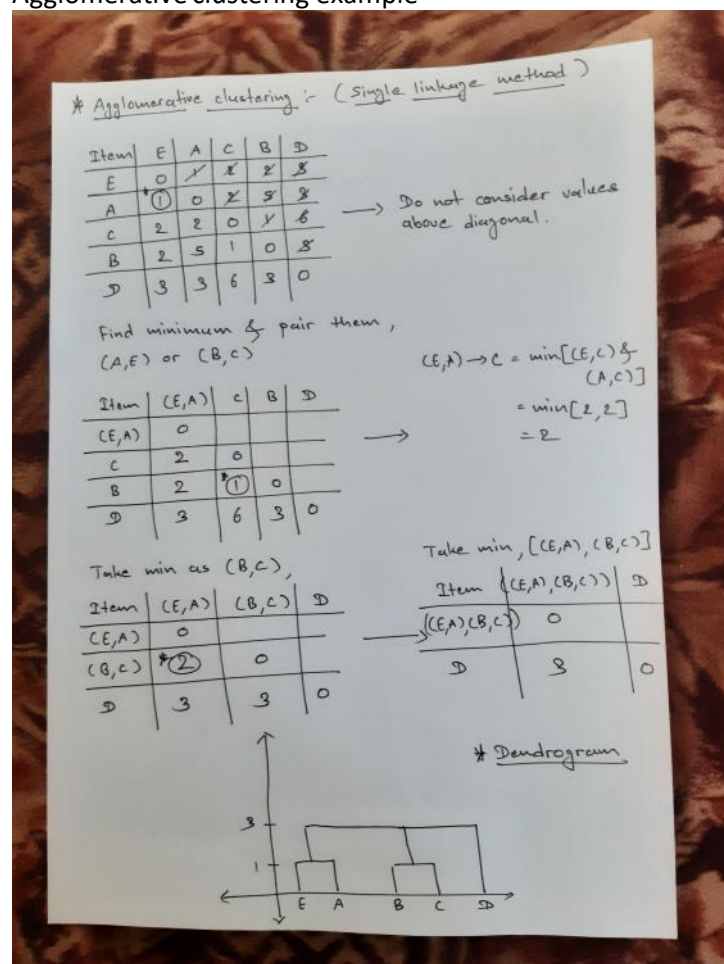 Agglomerative clustering example
* Agglomerative clustering :- (Single linkage method)
Item E A C B D
E 0 1 2 2 3
A *1 0 2 5 3
C 2 2 0 1 6
B 2 5 1 0 3
D 3 3 6 3 0
→ Do not consider values
above diagonal.
Find minimum & pair them,
(A,E) or (B,C)
Item (E,A) C B D
(E,A) 0
C 2 0
B 2 *1 0
D 3 6 3 0
→
(E,A) → C = min[(E,C) &
(A,C)]
= min[2,2]
= 2
Take min as (B,C),
Item (E,A) (B,C) D
(E,A) 0
(B,C) *2 0
D 3 3 0
→
Take min, [(E,A), (B,C)]
Item ((E,A),(B,C)) D
((E,A),(B,C)) 0
D 3 0
* Dendrogram
3
1
E A B C D